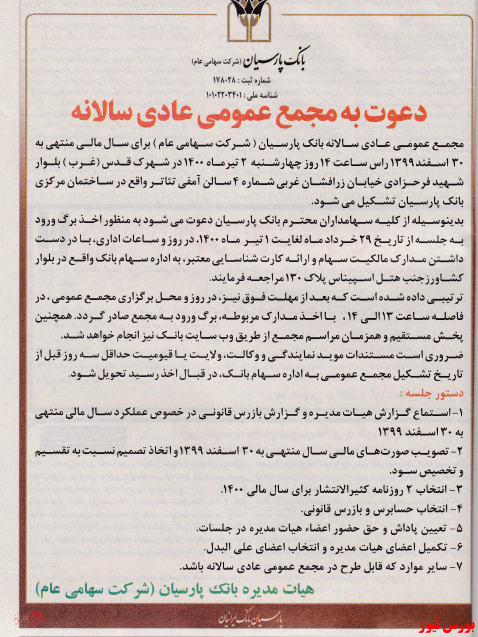 بانک پارسیان (شرکت سهامی عام)
شماره ثبت : ۱۷۸۰۲۸
شناسه ملی : ۱۰۱۰۲۲۰۳۴۰۱
دعوت به مجمع عمومی عادی سالانه
مجمع عمومی عادی سالانه بانک پارسیان ( شرکت سهامی عام ) برای سال مالی منتهی به
۳۰ اسفند ۱۳۹۹ راس ساعت ۱۴ روز چهارشنبه ۲ تیرماه ۱۴۰۰ در شهرک قدس (غرب) بلوار
شهید فرحزادی خیابان زرافشان غربی شماره ۴ سالن آمفی تئاتر واقع در ساختمان مرکزی
بانک پارسیان تشکیل می شود.
بدینوسیله از کلیه سهامداران محترم بانک پارسیان دعوت می شود به منظور اخذ برگ ورود
به جلسه از تاریخ ۲۹ خرداد ماه لغایت ۱ تیر ماه ۱۴۰۰، در روز و ساعات اداری، با در دست
داشتن مدارک مالکیت سهام و ارائه کارت شناسایی معتبر، به اداره سهام بانک واقع در بلوار
کشاورز جنب هتل اسپیناس پلاک ۱۳۰ مراجعه فرمایند.
ترتیبی داده شده است که بعد از مهلت فوق نیز، در روز و محل برگزاری مجمع عمومی ، در
فاصله ساعت ۱۳ الی ۱۴ ، با اخذ مدارک مربوطه، برگ ورود به مجمع صادر گردد. همچنین
پخش مستقیم و همزمان مراسم مجمع از طریق وب سایت بانک نیز انجام خواهد شد.
ضروری است مستندات موید نمایندگی و وکالت، ولایت یا قیومیت حداقل سه روز قبل از
تاریخ تشکیل مجمع عمومی به اداره سهام بانک، در قبال اخذ رسید تحویل شود.
دستور جلسه :
۱- استماع گزارش هیات مدیره و گزارش بازرس قانونی در خصوص عملکرد سال مالی منتهی
به ۳۰ اسفند ۱۳۹۹
۲- تصویب صورت‌های مالی سال منتهی به ۳۰ اسفند ۱۳۹۹ و اتخاذ تصمیم نسبت به تقسیم
و تخصیص سود.
۳- انتخاب ۲ روزنامه کثیرالانتشار برای سال مالی ۱۴۰۰.
۴- انتخاب حسابرس و بازرس قانونی.
۵- تعیین پاداش و حق حضور اعضاء هیات مدیره در جلسات.
۶- تکمیل اعضای هیات مدیره و انتخاب اعضای علی البدل.
۷- سایر موارد که قابل طرح در مجمع عمومی عادی سالانه باشد.
هیات مدیره بانک پارسیان (شرکت سهامی عام)
پارسیان بانک ایرانیان
بورس نیوز